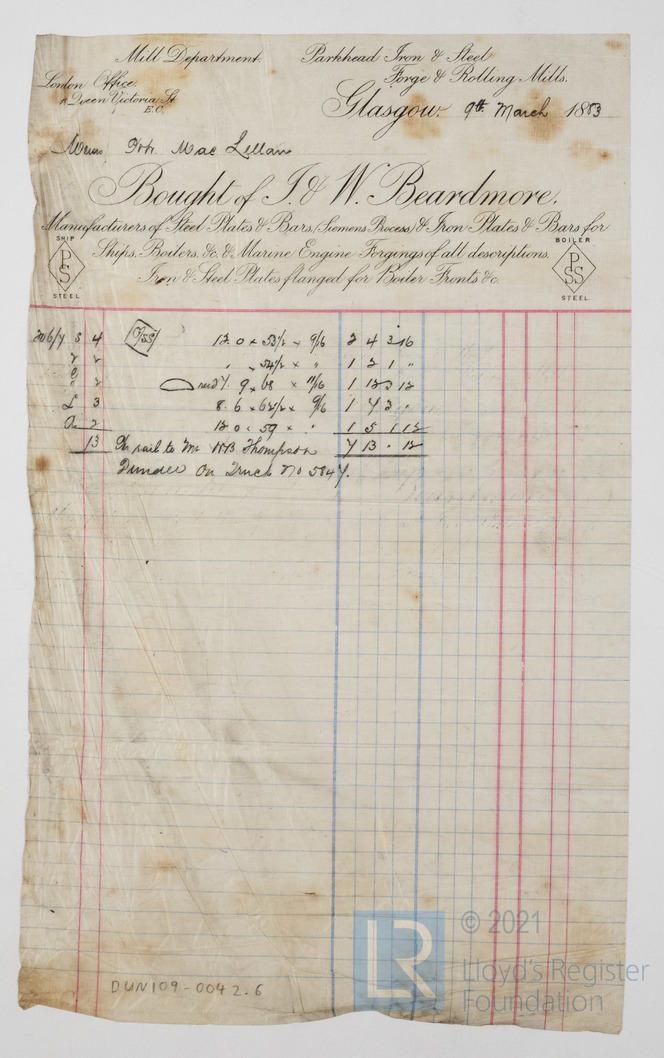 Mill Department. Parkhead Iron & Steel
Forge & Rolling Mills.
London Office.
Queen Victoria St
E.C.
Glasgow. 9th March 1883
Messrs. Mac Lellan
Bought of I. & W. Beardmore.
Manufacturers of Steel Plates & Bars, (Siemens Process) & Iron Plates & Bars for
SHIP
PS
STEEL
Ships, Boilers, &c. & Marine Engine Forgings of all descriptions.
Iron & Steel Plates flanged for Boiler Fronts &c.
BOILER
PSS
STEEL
4 12.0 x 53½ x 9/16 2 4 3 16
2 " 54½ x " 1 2 1 "
2 9 x 68 x 11/16 1 12 3 12
3 8.6 x 62½ x 9/16 1 4 3 "
2 12.0 x 59 x " 1 5 1 12
13 Per rail to Mr Thompson 7 13 . 12
Dundee On Truck No 5847.
DUN109-0042.6
LR
© 2021
Lloyd's Register
Foundation